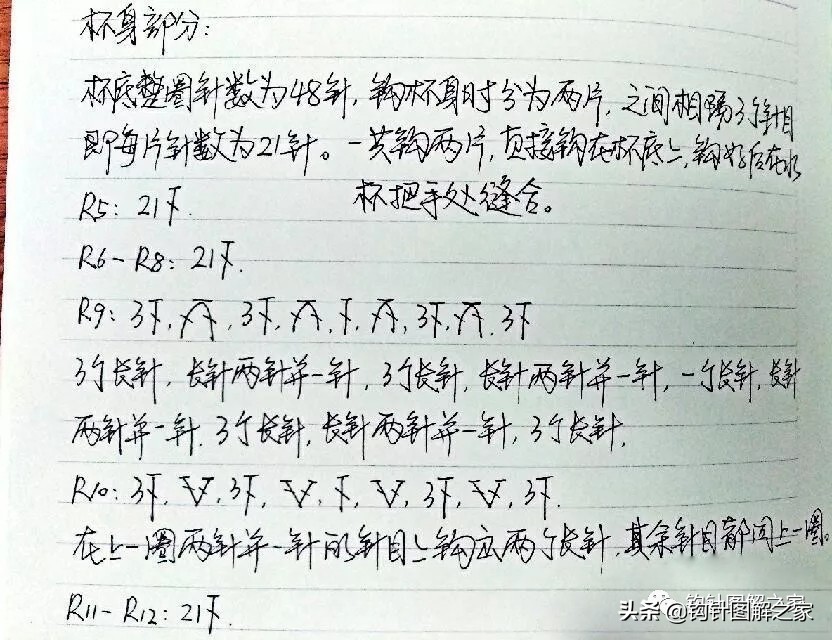 杯身部分:
杯底整圈针数为48针,钩杯身时分为两片,之间相隔3个针目
即每片针数为21针。一共钩两片,直接钩在杯底上,钩好后在水
杯把手处缝合。
R5: 21下.
R6-R8: 21下.
R9: 3下, , 3下, , 下, , 3下, , 3下
3个长针, 长针两针并一针, 3个长针, 长针两针并一针, 一个长针, 长针
两针并一针. 3个长针, 长针两针并一针, 3个长针.
R10: 3下, , 3下, , 下, , 3下, , 3下.
在上一圈两针并一针的针目上钩出两个长针, 其余针目都同上一圈。
R11-R12: 21下.
钩针图解之家
头条@钩针图解之家